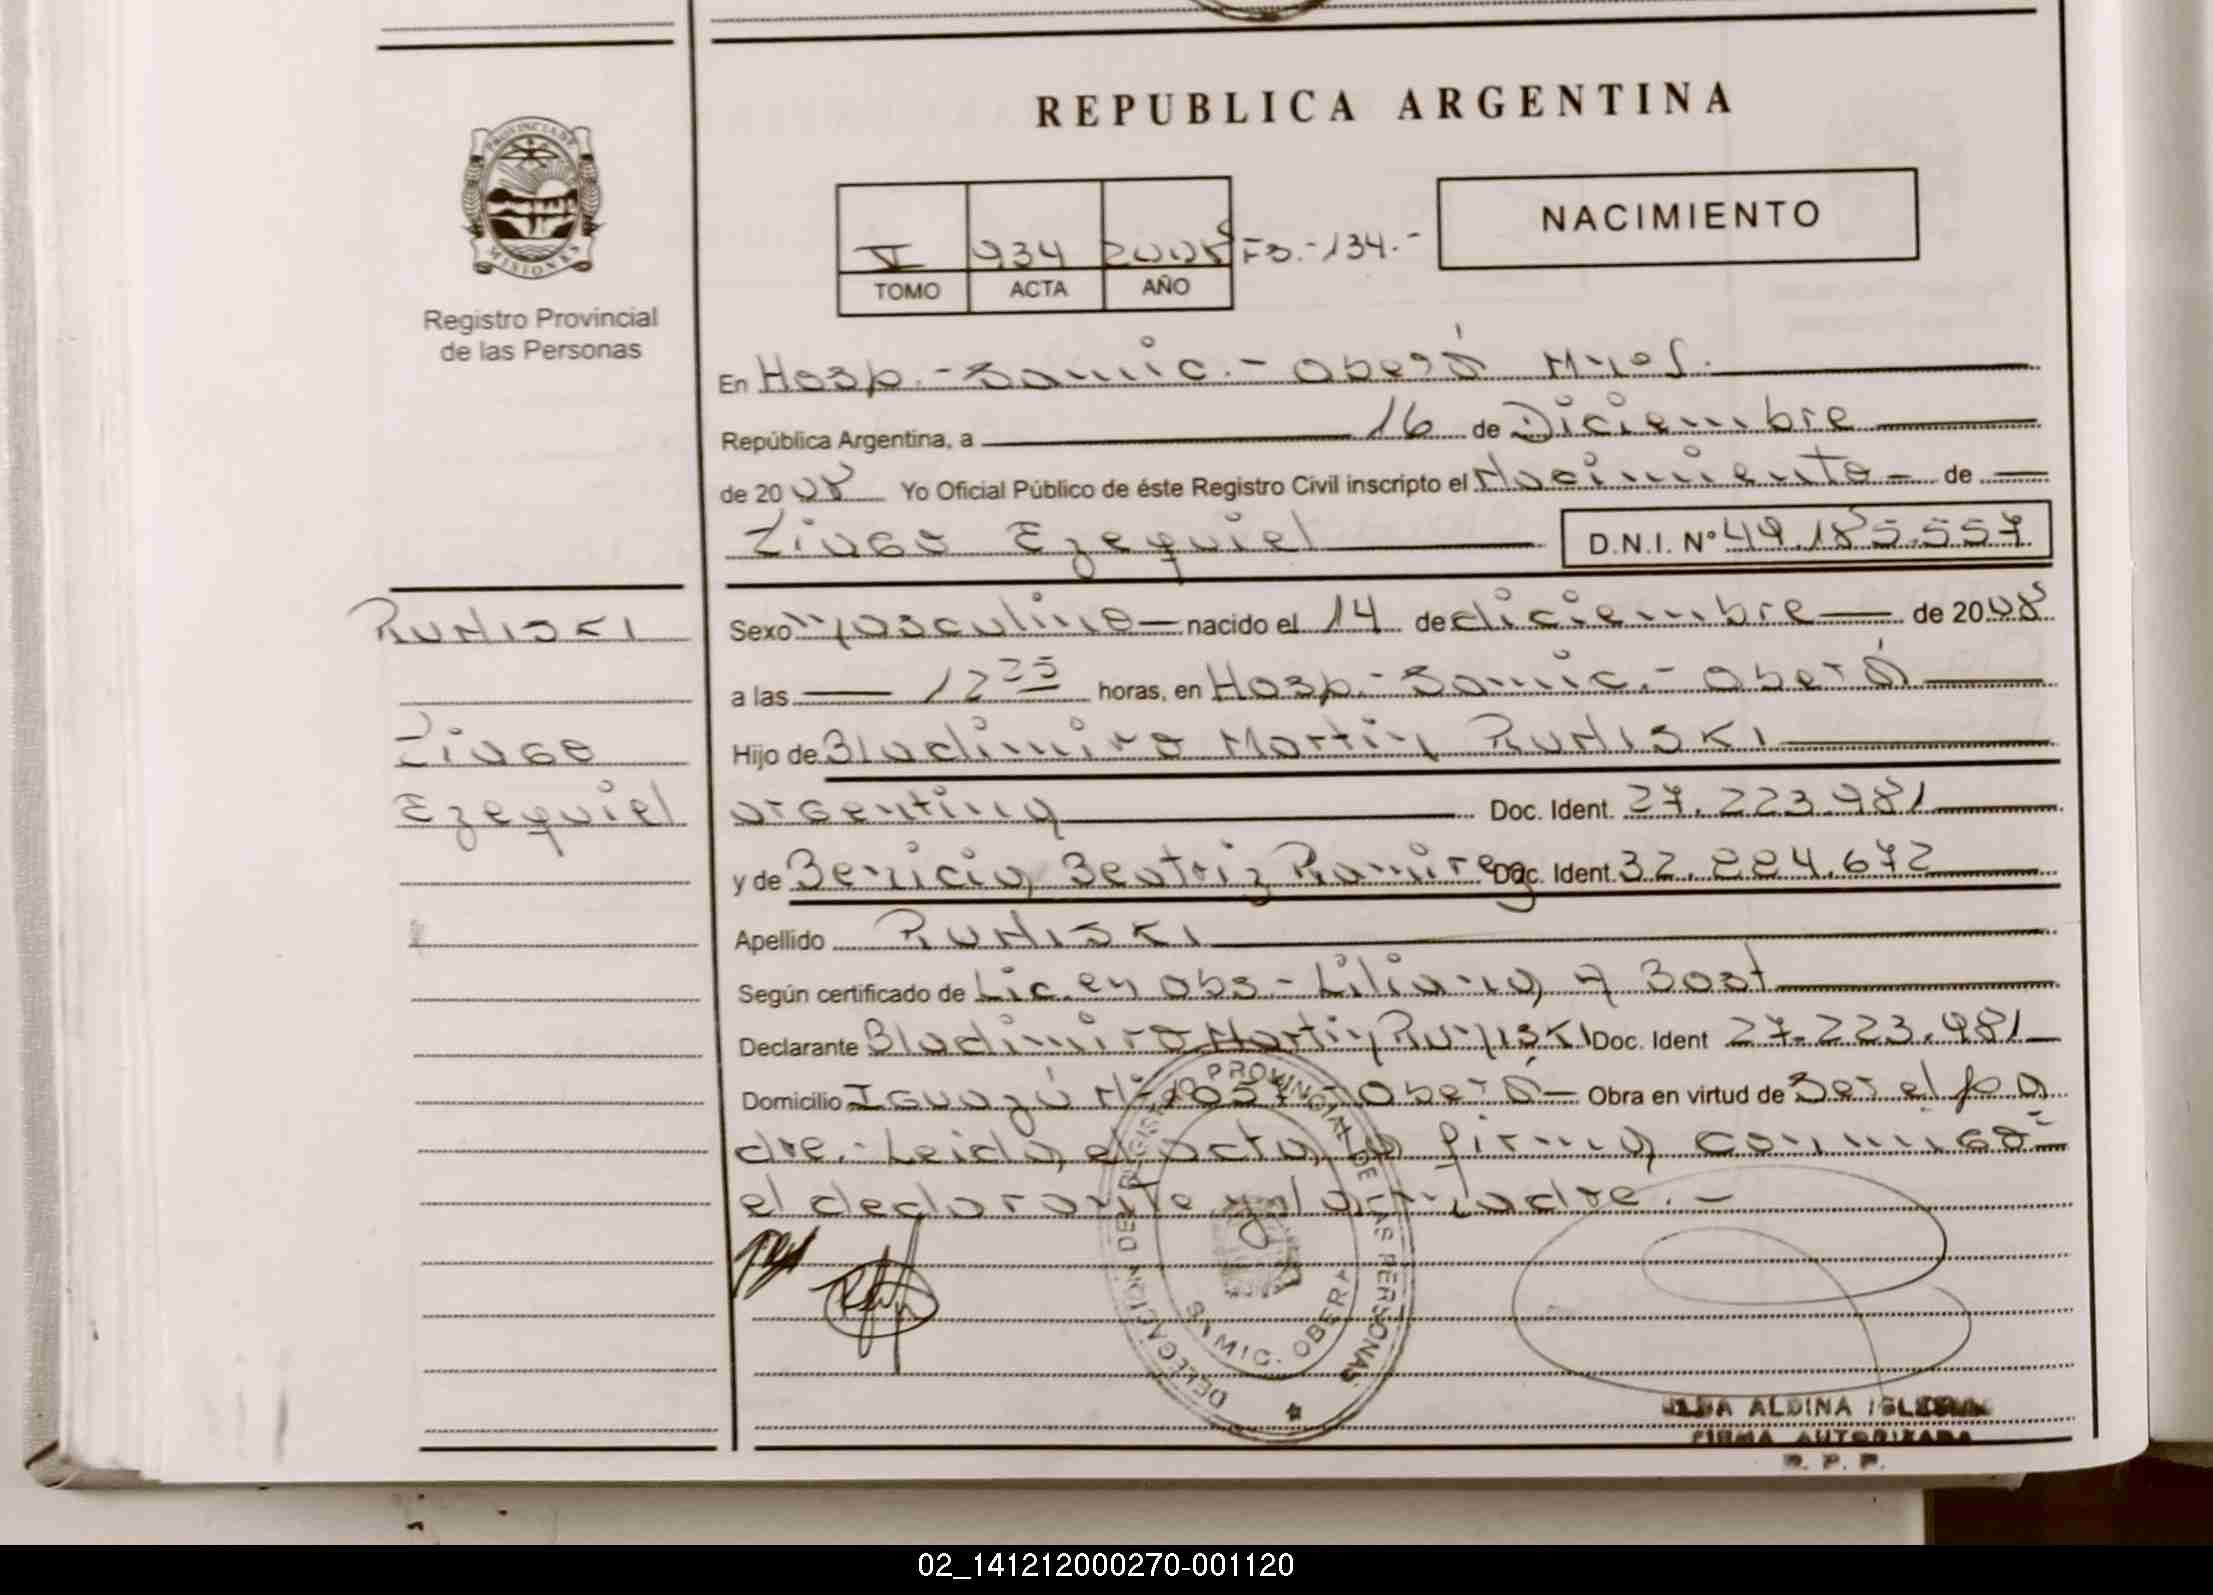 REPUBLICA ARGENTINA
PROVINCIA DE
MISIONES
Registro Provincial
de las Personas
V 934 2008 Fº.-134.-
TOMO ACTA AÑO
NACIMIENTO
En Hosp.-Samic.-Oberá Mnes.
República Argentina, a 16 de Diciembre
de 2008 Yo Oficial Público de éste Registro Civil inscripto el Nacimiento - de
Ezequiel D.N.I. Nº 49.185.557
RUNISKI
Sexo Masculino nacido el 14 de diciembre de 2008
a las 12 35 horas, en Hosp.-Samic.-Oberá
Hijo de Bladimiro Martin RUNISKI
Ezequiel
argentina Doc. Ident. 27.223.981
y de Benicia Beatriz Ramirez Doc. Ident. 32.884.672
Apellido RUNISKI
Según certificado de Lic. en Obs-Liliana A Bost
Declarante Bladimiro Martin RUNISKI Doc. Ident 27.223.981
Domicilio Iguazú Nº 1057 - Oberá Obra en virtud de Ser el pa
dre.- Leida el acta la firma conmigo
el declarante y la madre.-
DELEGACION DEL REGISTRO PROVINCIAL DE LAS PERSONAS
SAMIC. OBERA
ALDINA
FIRMA AUTORIZADA
R. P. P.
02_141212000270-001120